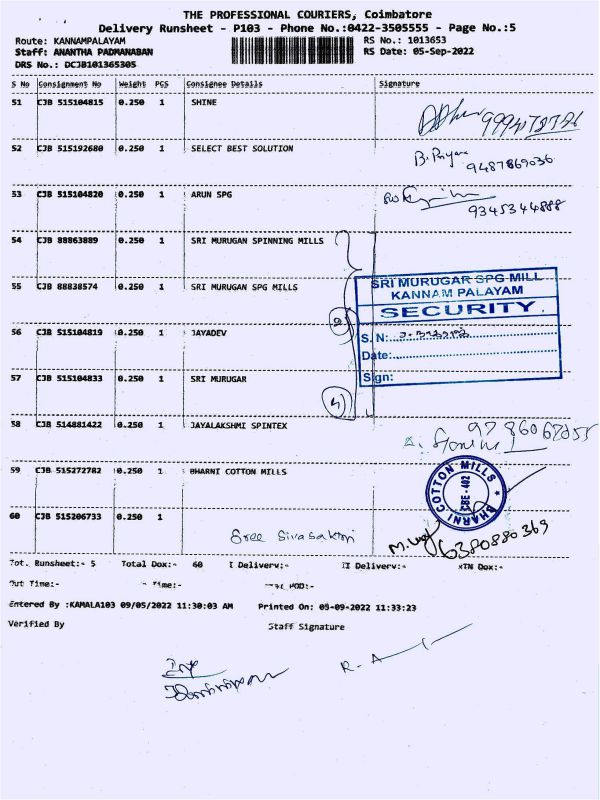 THE PROFESSIONAL COURIERS, Coimbatore
Delivery Runsheet - P103 - Phone No.:0422-3505555 - Page No.:5
Route: KANNAMPALAYAM RS No.: 1013653
Staff: ANANTHA PADMANABAN RS Date: 05-Sep-2022
DRS No.: DCJB101365305
S No Consignment No Weight PCS Consignee Details Signature
51 CJB 515104815 0.250 1 SHINE
52 CJB 515192680 0.250 1 SELECT BEST SOLUTION
B. Priya
9487869036
53 CJB 515104820 0.250 1 ARUN SPG
9345344888
54 CJB 88863889 0.250 1 SRI MURUGAN SPINNING MILLS
55 CJB 88838574 0.250 1 SRI MURUGAN SPG MILLS
SRI MURUGAR SPG MILL
KANNAM PALAYAM
SECURITY
56 CJB 515104819 0.250 1 JAYADEV
S. N:
Date:
57 CJB 515104833 0.250 1 SRI MURUGAR
Sign:
58 CJB 514881422 0.250 1 JAYALAKSHMI SPINTEX
59 CJB 515272782 0.250 1 BHARNI COTTON MILLS
BHARNI COTTON MILLS
CBE - 402
60 CJB 515206733 0.250 1
Sree Sivasakthi
6380880369
Tot. Runsheet:- 5 Total Dox:- 60 I Delivery:- II Delivery:- RTN Dox:-
Out Time:- Time:- POD:-
Entered By :KAMALA103 09/05/2022 11:30:03 AM Printed On: 05-09-2022 11:33:23
Verified By Staff Signature